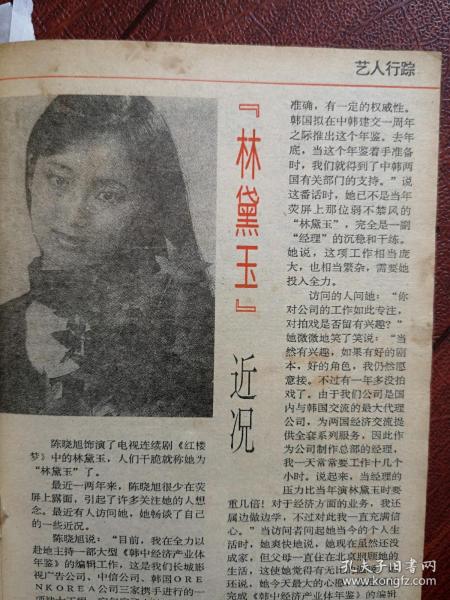 艺人行踪
『林黛玉』
近况
陈晓旭饰演了电视连续剧《红楼
梦》中的林黛玉，人们干脆就称她为
“林黛玉”了。
最近一两年来，陈晓旭很少在荧
屏上露面，引起了许多关注她的人想
念。最近有人访问她，她畅谈了自己
的一些近况。
陈晓旭说：“目前，我在全力以
赴地主持一部大型《韩中经济产业体
年鉴》的编辑工作，这是我们长城影
视广告公司、中信公司、韩国OREN
KOREA公司三家携手进行的一
准确，有一定的权威性。
韩国拟在中韩建交一周年
之际推出这个年鉴。去年
底，当这个年鉴着手准备
时，我们就得到了中韩两
国有关部门的支持。”说
这番话时，她已不是当年
荧屏上那位弱不禁风的
“林黛玉”，完全是一副
“经理”的沉稳和干练。
她说，这项工作相当庞
大，也相当繁杂，需要她
投入全力。
访问的人问她：“你
对公司的工作如此专注，
对拍戏是否留有兴趣？”
她微微地笑了笑说：“当
然有兴趣，如果有好的剧
本，好的角色，我仍然愿
意接。不过有一年多没拍
戏了。由于我们公司是国
内与韩国交流的最大代理
公司，为两国经济交流提
供全套系列服务，因此作
为公司制作总部的经理，
我一天常常要工作十几个
小时。说起来，当经理的
压力比当年演林黛玉时要
重几倍！对于经济方面的业务，我还
属边做边学，不过对此我一直充满信
心。”当访问者问起她当今的个人生
活时，她爽快地说，她现在虽然还没
成家，但父母一直住在北京照顾她的
生活，这使她觉得有无
还说，她今天最大的心
完成《韩中经济产业体年鉴》的编辑
孔夫子旧书网